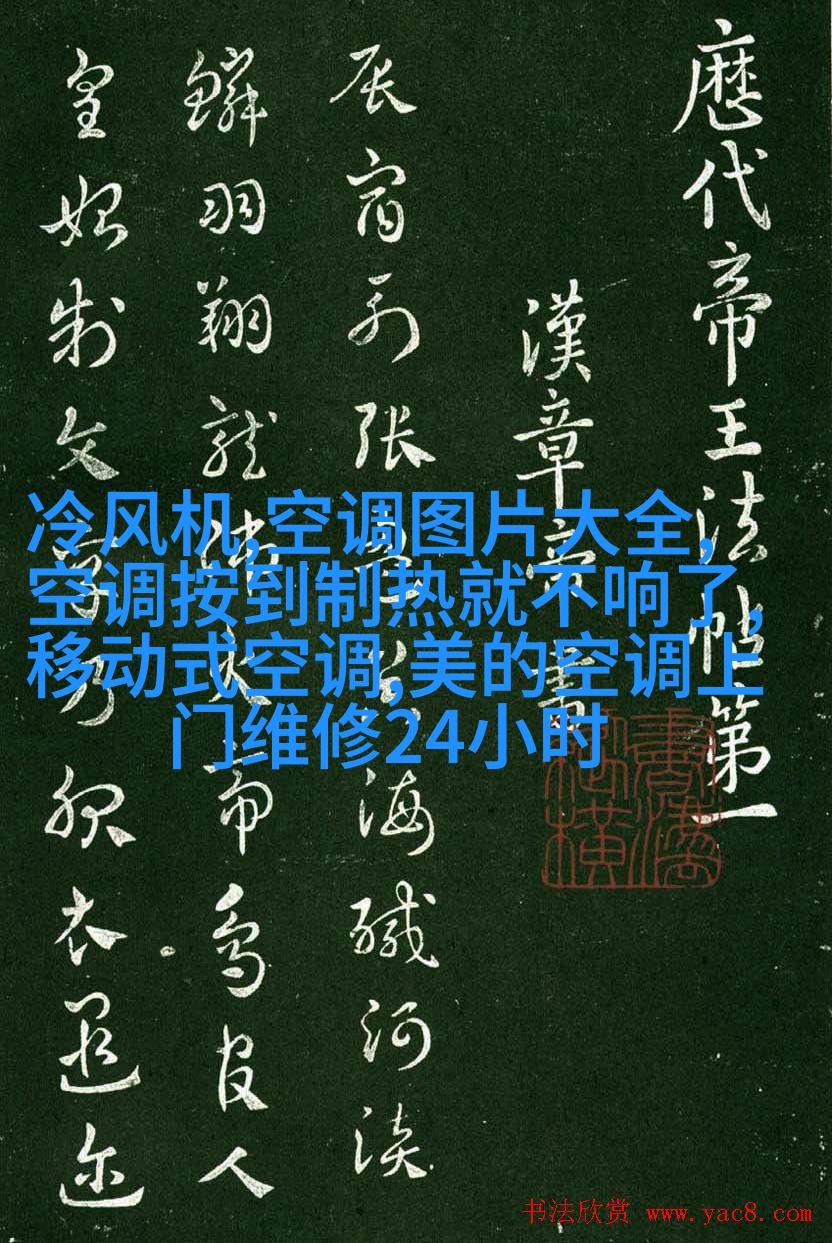 厯代帝王法帖第一
漢章帝書
辰宿列張
海醎河淡
鱗羽翔龍師火帝鳥官人
皇始制文字乃服衣遐迩
冷风机,空调图片大全,
空调按到制热就不响了,
移动式空调,美的空调上
门维修24小时
书法欣赏 www.yac8.com